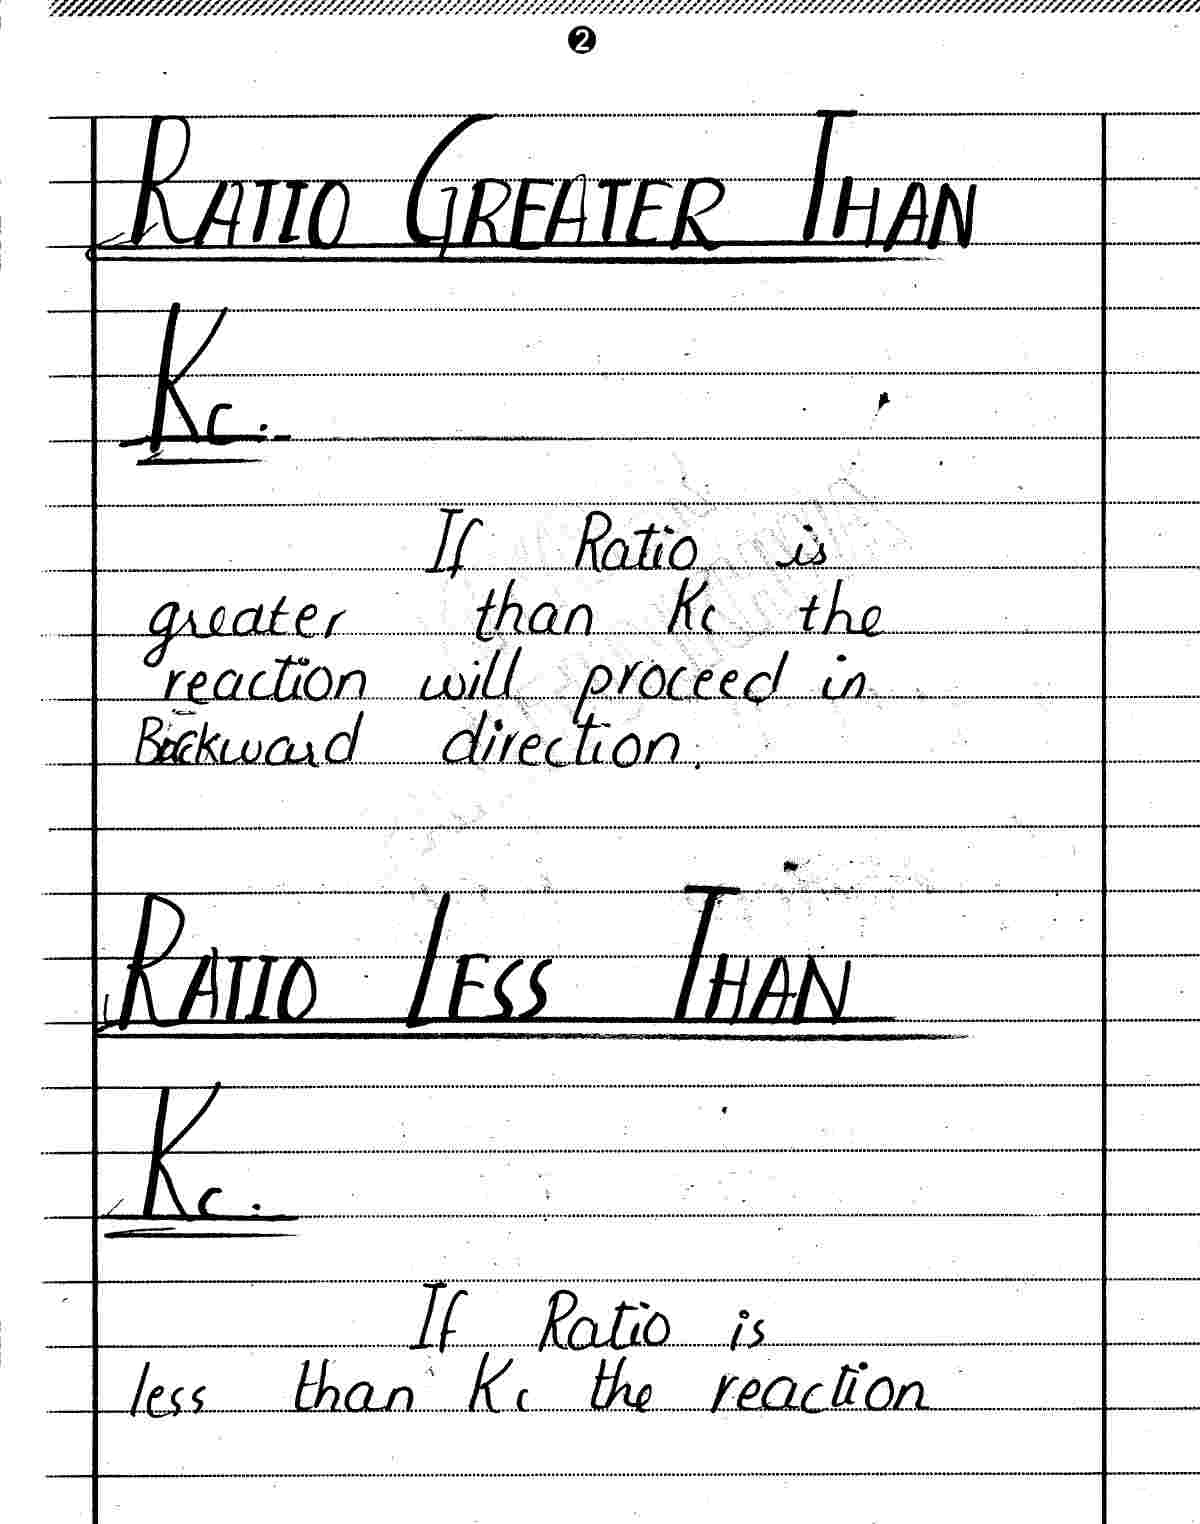 2
RATIO GREATER THAN
Kc.
If Ratio is
greater than Kc the
reaction will proceed in
Backward direction.
RATIO LESS THAN
Kc.
If Ratio is
less than Kc the reaction